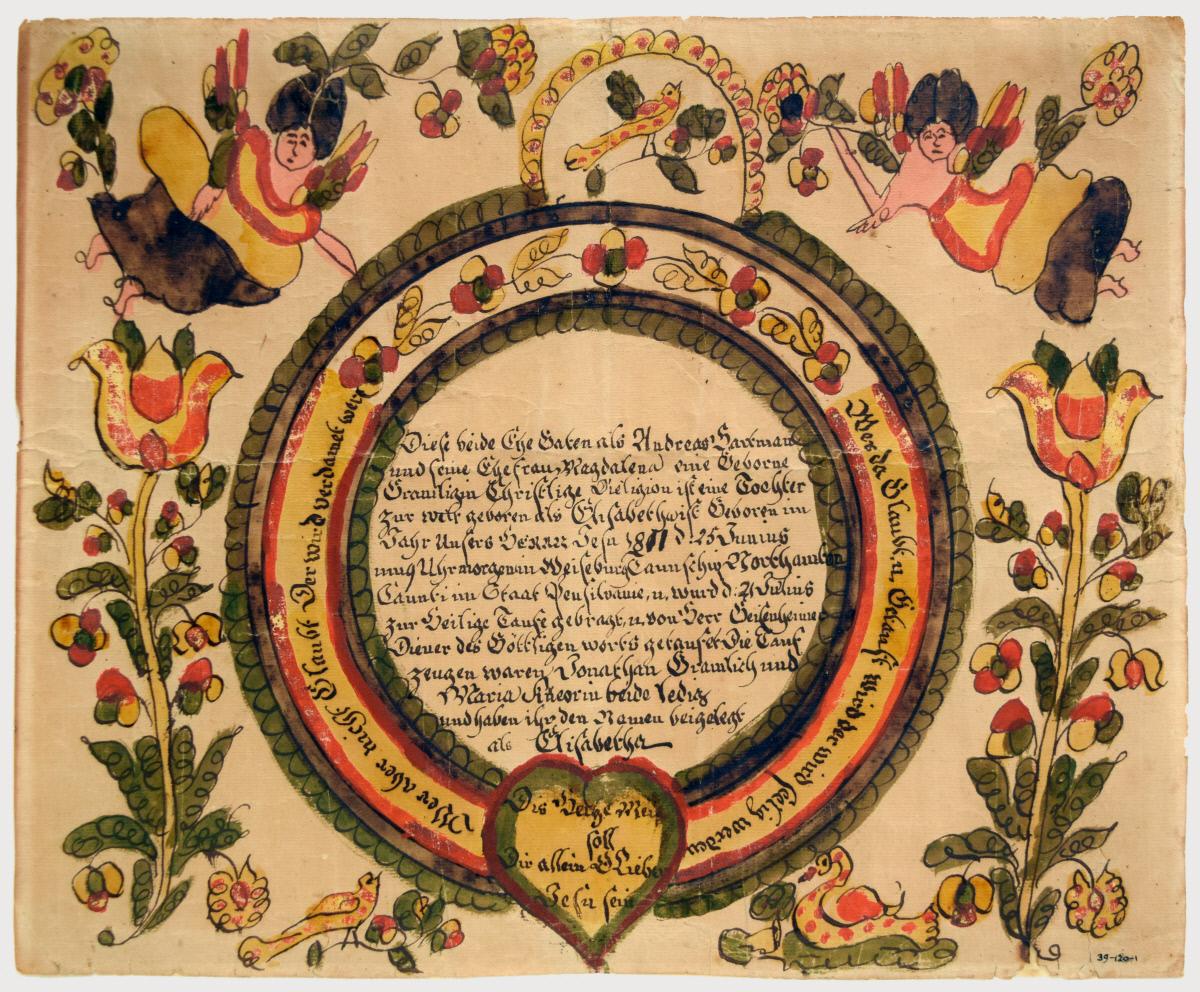 Diese beide Ehe Gaten als Andreas Hartman
und seine Ehefrau Magdalena eine Geborne
Gramligin Christlige Religion ist eine Tochter
zur welt geboren als Elisabetha ist Geboren im
Jahr Unsers Herrn Jesu 1811 d: 25 Junius
um 9 Uhr morgen in Weiseburg Taunschip Northamton
Caunti im Staat Pensilvanie, u, wurd d: 21 Julius
zur Heilige Taufe gebragt, u. von Herr Geisenheimer
Diener des Göttligen worts getaufet Die Tauf
zeugen waren Jonathan Gramlich und
Maria beide ledig
und haben ihr den Namen beigelegt
als Elisabetha
Wer da Glaubt. u, Getauft Wird der wird selig werden
Wer aber nicht Glaubt Der wird verdamet werd
Dis Hertze Mein
soll
Dir allein O Lieber
Jesu sein
39-120-1